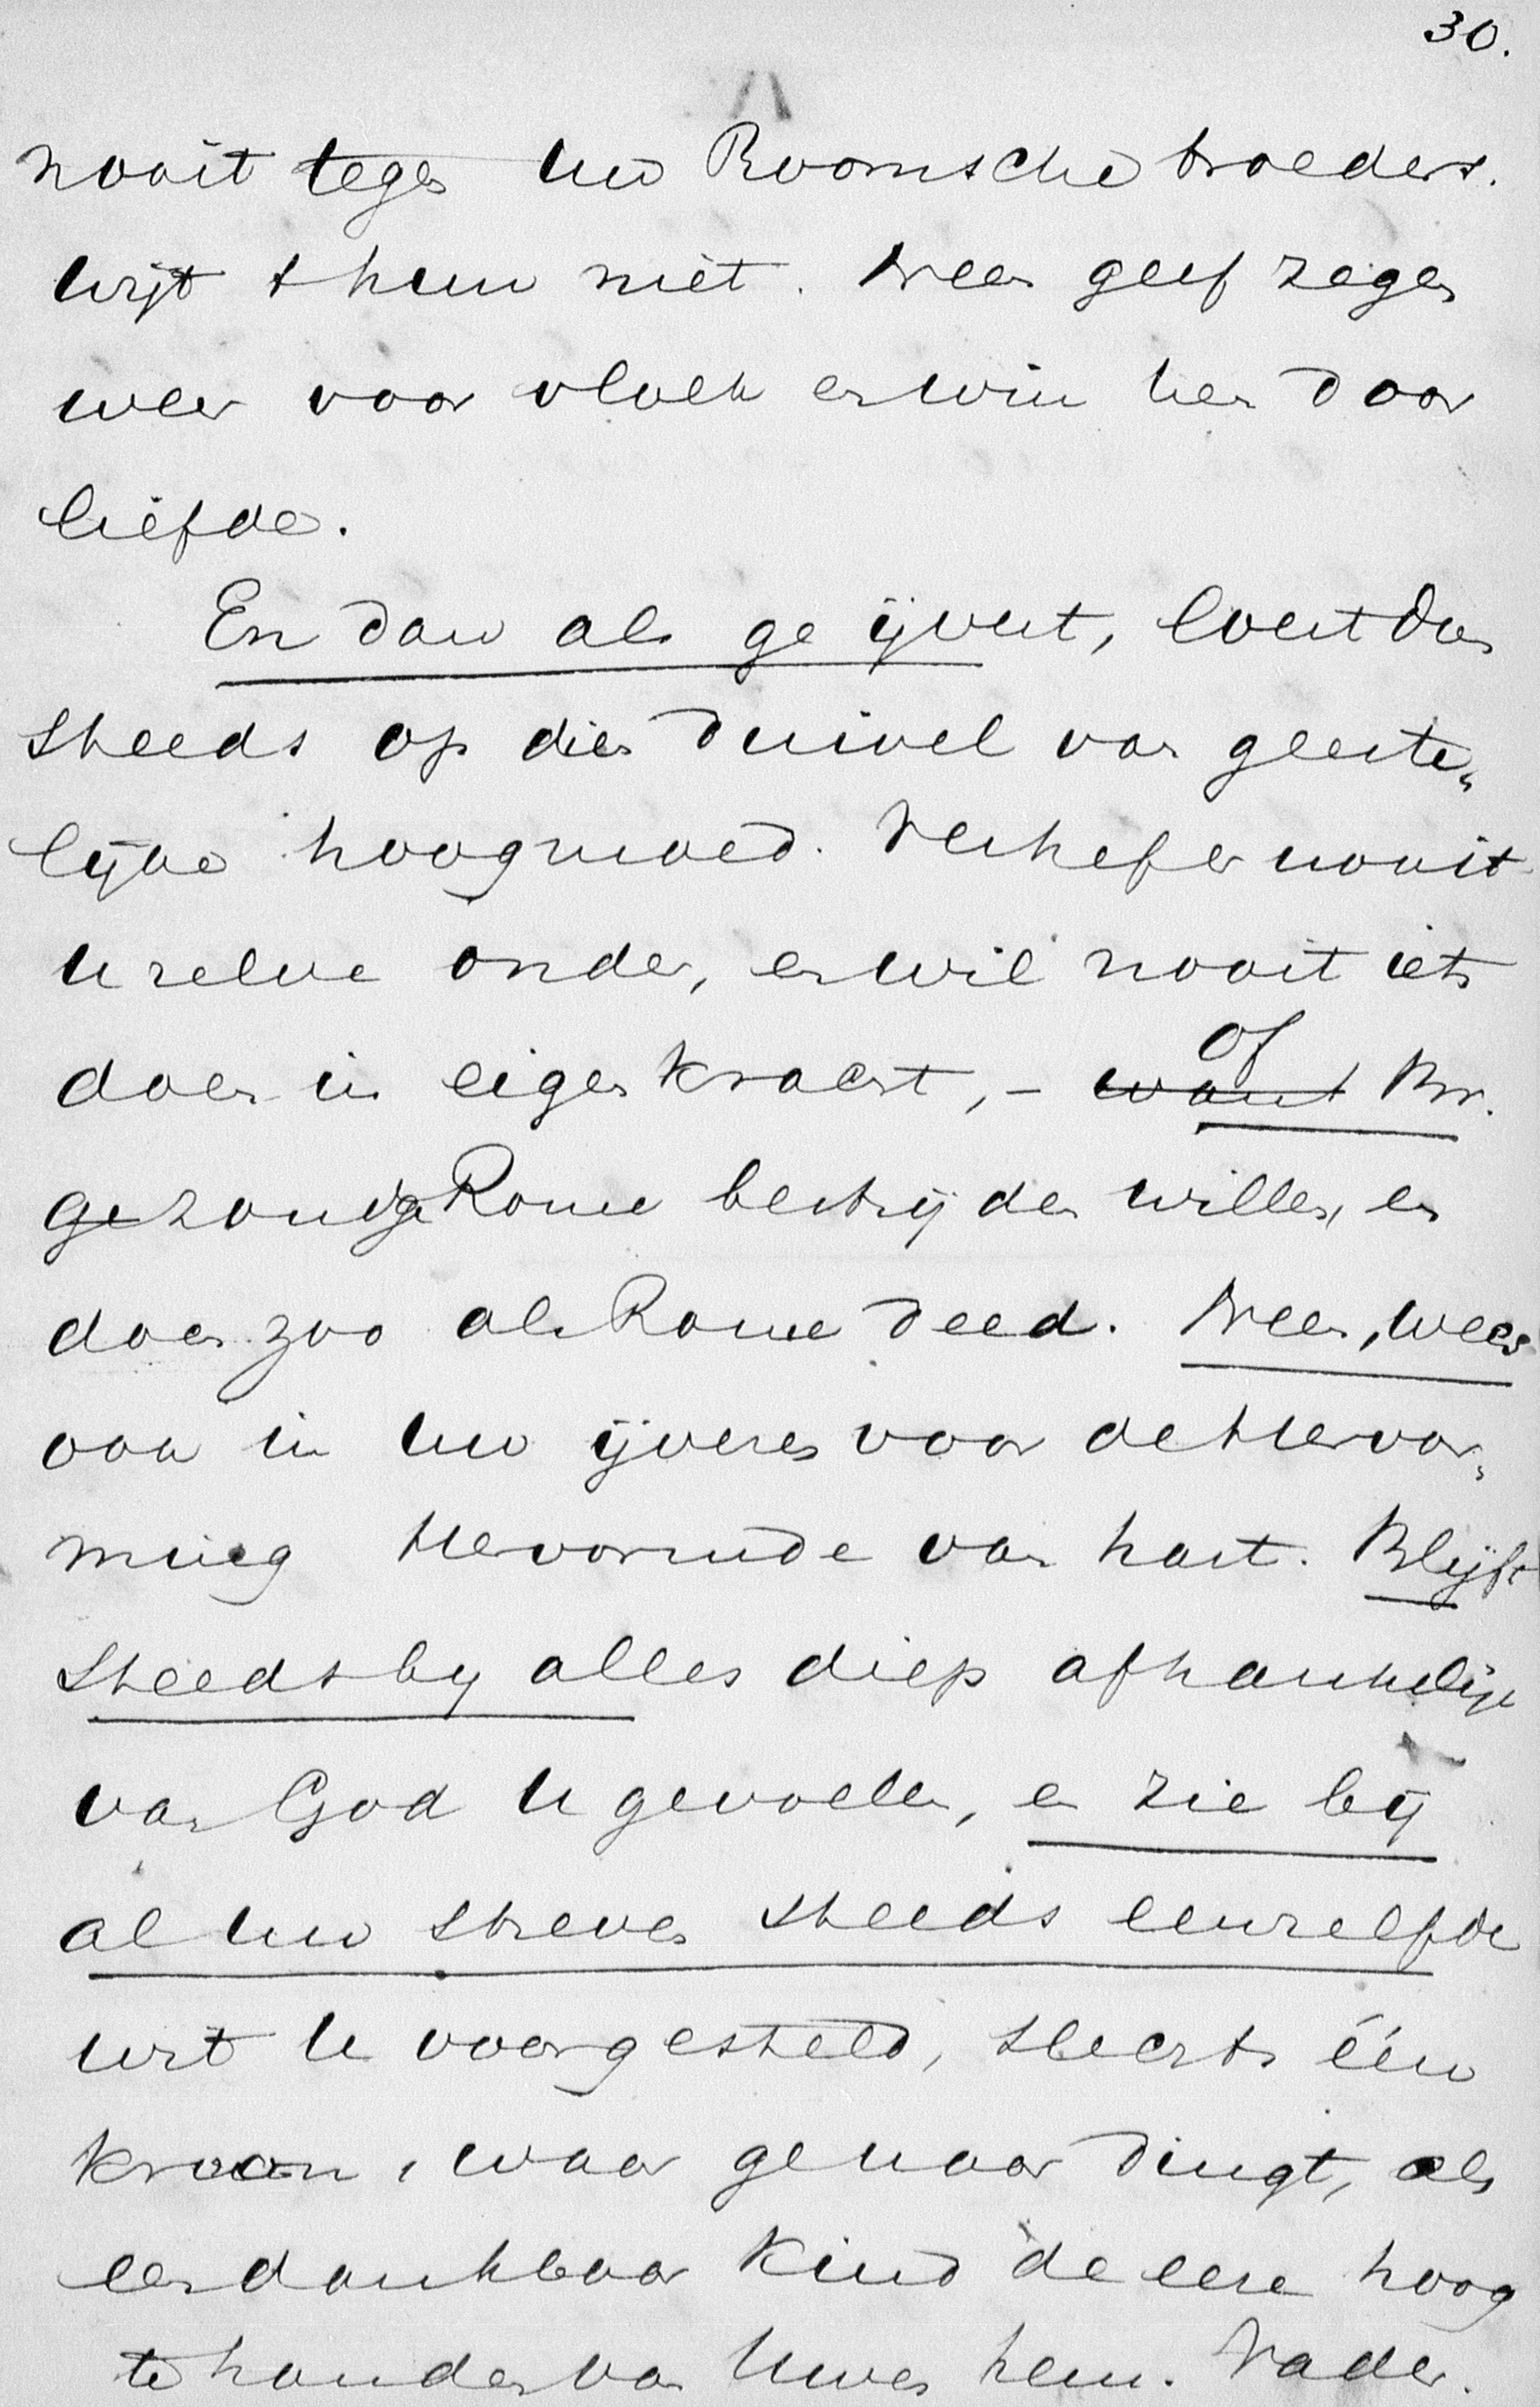 30.
nooit tegen uw Roomsche broeders.
wijt 't hun niet. Neen geef zegen
weer voor vloek en win hen door
liefde.
En dan als ge ijvert, loert dan
steeds op dien duivel van geeste„
lijke hoogmoed. Verhef er nooit
u zelve onder, en wil nooit iets
doen in eigen kracht, – want of Br.
ge zoudt Rome bestrijden willen, en
doen zoo als Rome deed. Neen, wees
ook in uw ijveren voor de Hervor„
ming Hervormde van hart. Blijft
steeds by alles diep afhankelijk
van God u gevoelen, en zie bij
al uw streven steeds eenzelfde
wit u voorgesteld, slechts één
kroon, waar ge naar dingt, als
een dankbaar kind de eere hoog
te houden van Uwen hem. Vader.